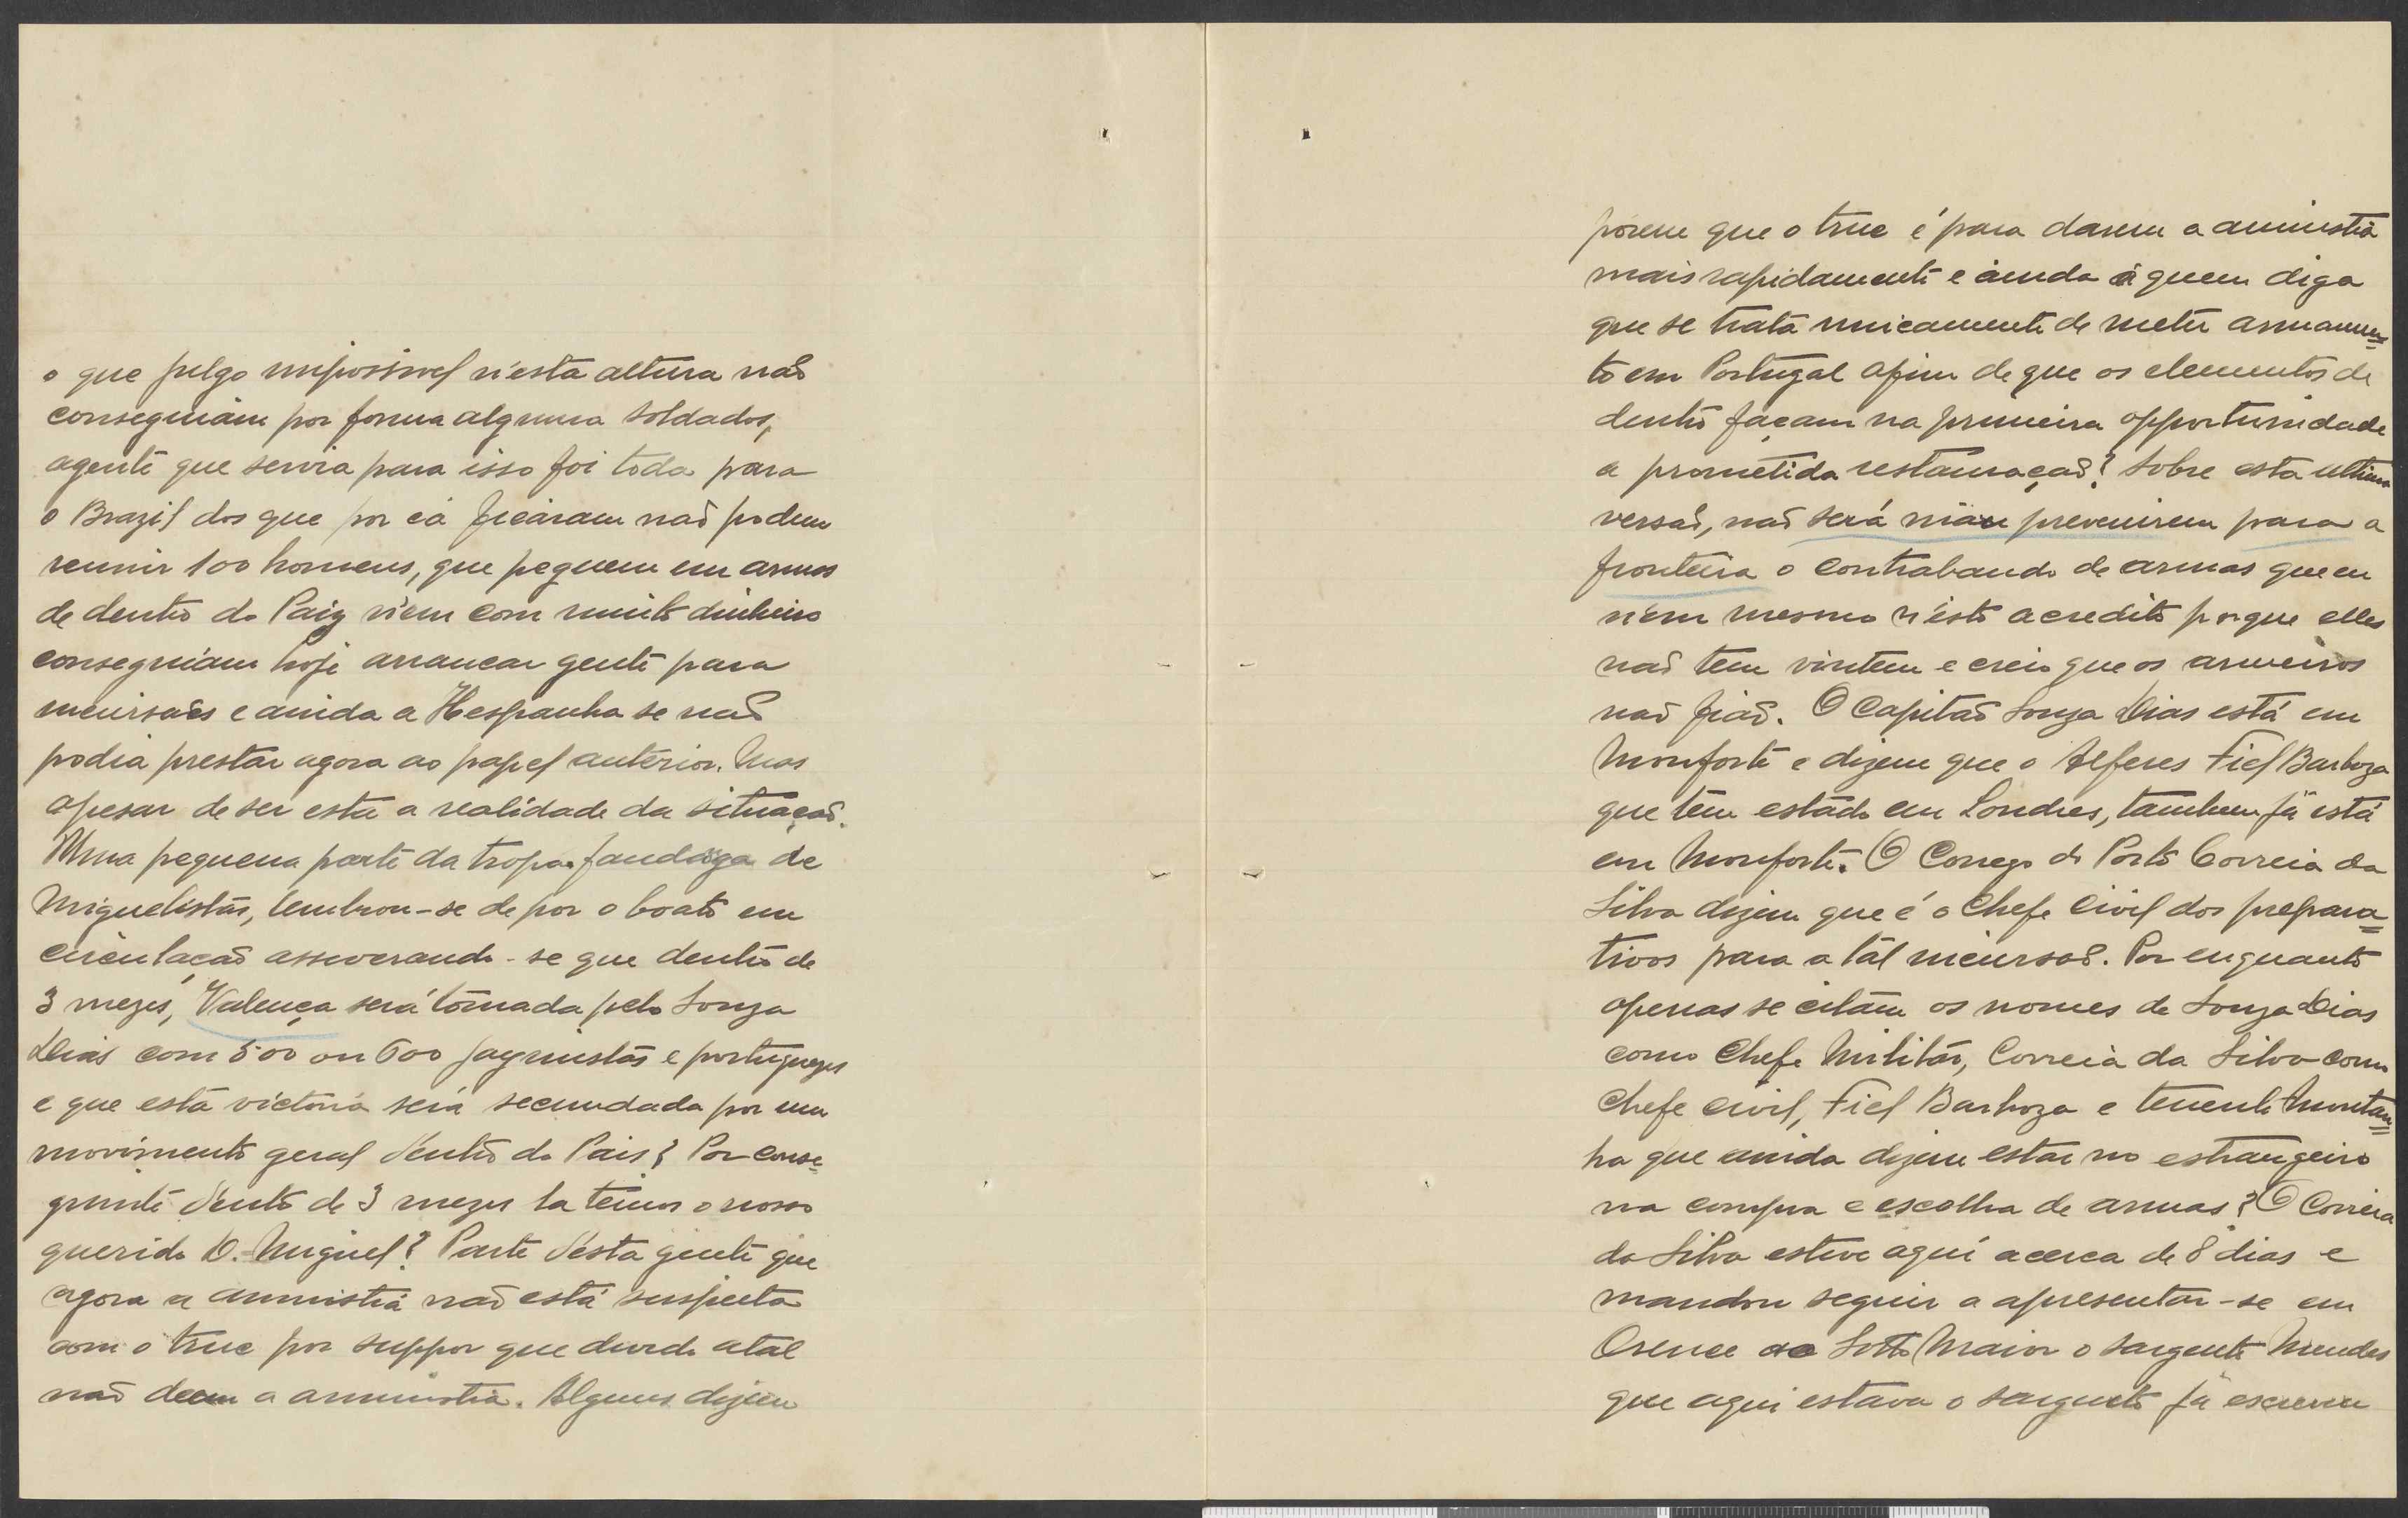 o que julgo impossivel n'esta altura não
conseguiam por forma alguma soldados,
agente que servia para isso foi toda para
o Brazil dos que por cá ficáram não podem
reunir 100 homens, que peguem em armas
de dentro do Paiz n'em com muito dinheiro
conseguiam hoje arrancar gente para
incursões e ainda a Hespanha se não
podia prestar agora ao papel anterior. Mas
apesar de ser esta a realidade da situação.
Uma pequena parte da tropa fandaga de
Miguelistas, lembrou-se de por o boato em
circulação asseverando-se que dentro de
3 mezes, Valença será tomada pelo Souza
Dias com 500 ou 600 jaymistas e portuguezes
e que esta victoria será secundada por um
movimento geral dentro do Pais? Por conse-
guinte dentro de 3 mezes la temos o nosso
querido D. Miguel? Parte d'esta gente que
agora a amnistia não está suspecta
com o truc por suppor que durdo atal
não deem a amnistia. Alguns dizem
porem que o truc é para darem a amnistia
mais rapidamente e ainda á quem diga
que se trata unicamente de meter armamen=
to em Portugal afim de que os elementos de
dentro façam na primeira opportunidade
a prometida restauração? Sobre esta ultima
versão, não será máu prevenirem para a
fronteira o contrabando de armas que eu
n'em mesmo n'isto acredito porque elles
não tem vintem e creio que os armeiros
não fião. O Capitão Souza Dias está em
Monforte e dizem que o Alferes Fiel Barboza
que tem estado em Londres, tambem já está
em Monforte. O Conego do Porto Correia da
Silva dizem que é o Chefe Civil dos prepara=
tivos para a tal incursão. Por enquanto
apenas se citam os nomes de Souza Dias
como Chefe Militar, Correia da Silva como
Chefe civil, Fiel Barboza e tenente Montan=
ha que ainda dizem estar no estrangeiro
na compra e escolha de armas? O Correia
da Silva esteve aquí acerca de 8 dias e
mandou seguir a apresentar-se em
Orense ao Sotto Maior o sargento Mendes
que aqui estava o sargento já escreveu